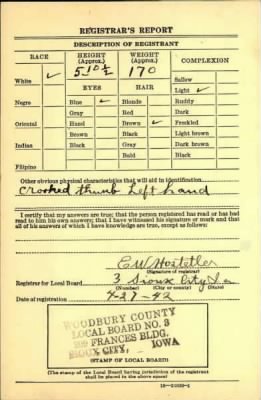 REGISTRAR'S REPORT
DESCRIPTION OF REGISTRANT
RACE HEIGHT (Approx.) WEIGHT (Approx.) COMPLEXION
5-10½ 170
White ✓ Sallow
EYES HAIR Light ✓
Negro Blue ✓ Blonde Ruddy
Gray Red Dark
Oriental Hazel Brown ✓ Freckled
Brown Black Light brown
Indian Black Gray Dark brown
Bald Black
Filipino
Other obvious physical characteristics that will aid in identification
Crooked thumb Left hand
I certify that my answers are true; that the person registered has read or has had
read to him his own answers; that I have witnessed his signature or mark and that
all of his answers of which I have knowledge are true, except as follows:
C W Hostetler
(Signature of registrar)
Registrar for Local Board 3 Sioux City Ia
(Number) (City or county) (State)
Date of registration 4-27-42
WOODBURY COUNTY
LOCAL BOARD NO. 3
FRANCES BLDG.
SIOUX CITY, IOWA
(STAMP OF LOCAL BOARD)
(The stamp of the Local Board having jurisdiction of the registrant
shall be placed in the above space)